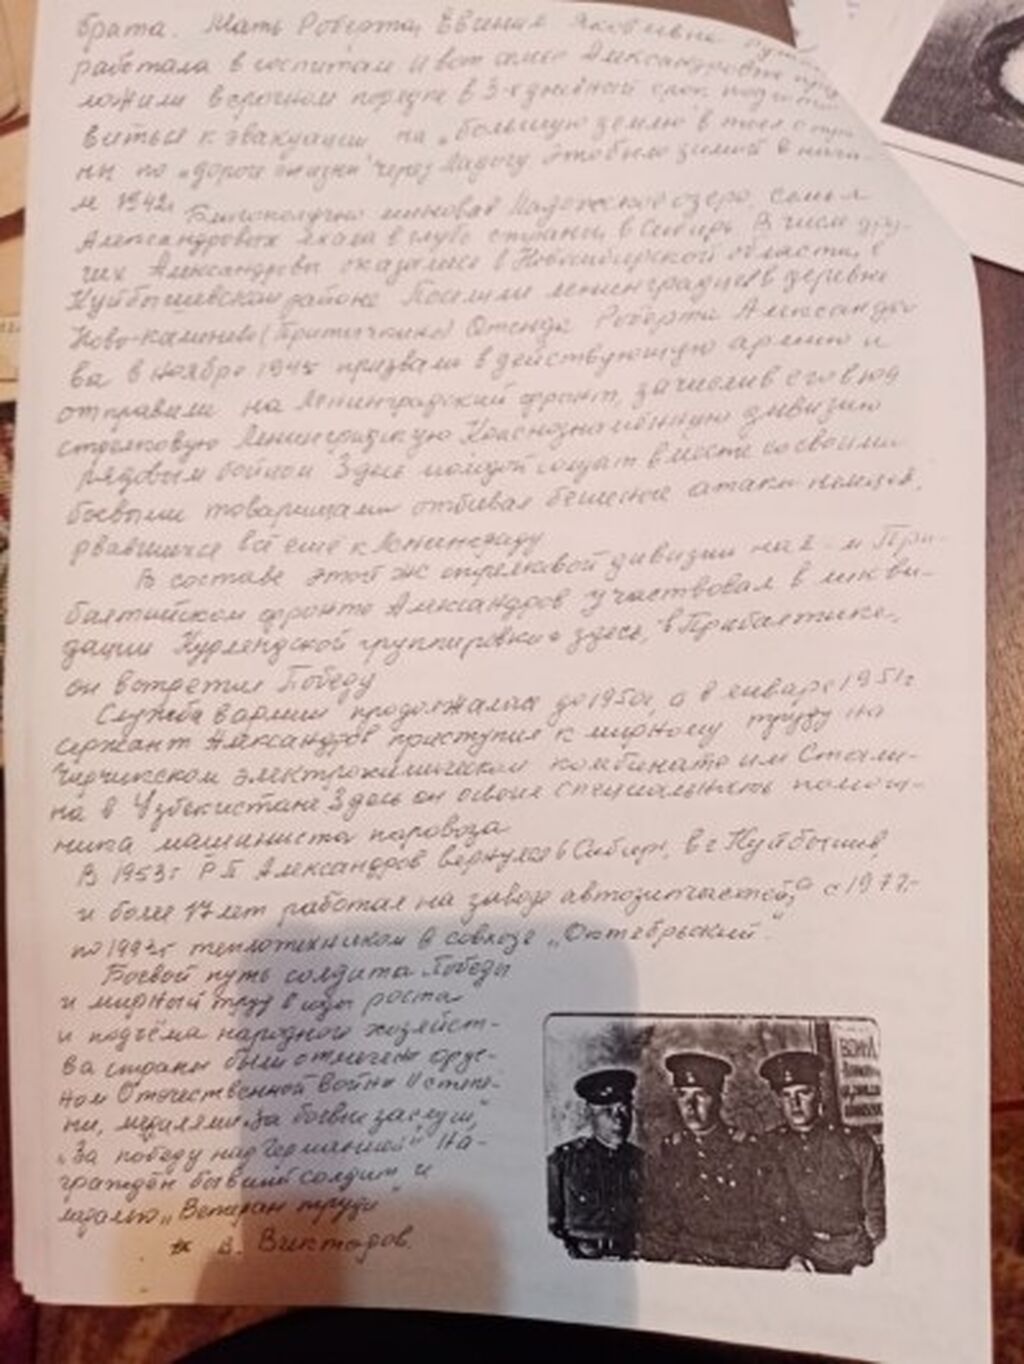 брата. Мать Роберта, Евгения Яковлевна
работала в госпитале И вот семье Александровых пред-
ложили в срочном порядке в 3-х дневный срок подгото-
виться к эвакуации на „Большую землю" в тыл стра-
ны по „дороге жизни" через Ладогу. Это было зимой в нача-
ле 1942г
Благополучно миновав Ладожское озеро, семья
Александровых ехала в глубь страны, в Сибирь. В числе дру-
гих Александровы оказались в Новосибирской области, в
Куйбышевском районе Поселили ленинградцев в деревне
Ново-Каменево Отсюда Роберта Александро
ва в ноябре призвали в действующую армию и
отправили на Ленинградский фронт, зачислив его в
стрелковую Ленинградскую Краснознамённую дивизию
рядовым бойцом Здес молодой солдат вместе со своими
боевыми товарищами отбивал бешеные атаки немцев,
рвавшихся всё ещё к Ленинграду
В составе этой ж стрелковой дивизии на 2-м При-
балтийском фронте Александров участвовал в ликви-
дации Курляндской группировки и здесь, в Прибалтике,
он встретил Победу
Служба в армии продолжалась до 1950г, а в январе 1951г
сержант Александров приступил к мирному труду на
Чирчикском электрохимическом комбинате им Стали-
на в Узбекистане Здесь он освоил специальность помощ-
ника машиниста паровоза
В 1953г Р П Александров вернулся в Сибирь, в г Куйбышев,
и более 17 лет работал на заводе автозапчастей, а с 1977г
по 1993г теплотехником в совхозе „Октябрьский".
Боевой путь солдата Победы
и мирный труд в годы роста
и подъёма народного хозяйст-
ва страны были отмечены орде-
ном Отечественной войны II степе-
ни, медалями „За боевые заслуги",
„За победу над Германией" На-
граждён бывший солдат и
медалью „Ветеран труда"
В. Викторов.